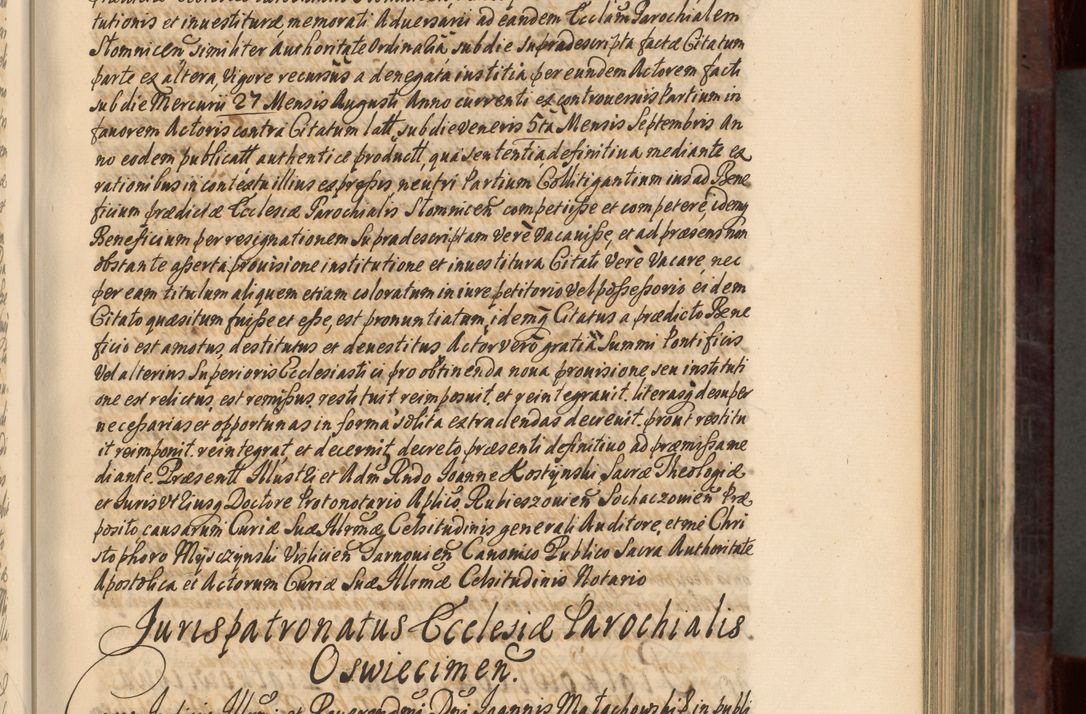 tutionis et investituræ, memorati Adversarii ad eandem Ecclam Parochialem
Stomnicen similiter Authoritate Ordinaliâ sub die supradescripta factæ Citatum
parte ex altera, vigore recursûs a denegata iustitia per eundem Actorem facti
sub die Mercurii 27 Mensis Augusti Anno currenti ex controversiis Partium in
favorem Actoris contra Citatum latt, sub die veneris 5tâ Mensis Septembris An
no eodem publicatt authenticè product, quâ sententiâ definitiva mediante ex
rationibus in contextu illius expressis, neutri Partium Collitigantium ius ad Bene
ficium prædictæ Ecclesiæ Parochialis Stomnicen competiisse et competere, idemq
Beneficium per resignationem Supradescriptam verè vacavisse, et ad præsens non
obstante asserta provisione institutione et investitura Citati verè vacare, nec
per eam titulum aliquem etiam coloratum in iure petitorio vel possessorio eidem
Citato quæsitum fuisse et esse, est pronuntiatum, idemq Citatus a prædicto Bene
ficio est amotus, destitutus et devestitus Actor verò gratiâ Summi Pontificis
vel alterius Superioris Ecclesiastici pro obtinenda nova provisione seu instituti
one est relictus, est remissus, restituit reimposuit, et reintegravit, literasq desuper
necessarias et opportunas in forma solita extradendas decrevit, prout restitu
it reimponit, reintegrat, et decernit, decreto præsenti definitivo ad præmissa me
diante. Præsentt Illustri et Adm Rndo Joanne Kostynski Sacræ Theologiæ
et Juris Vtriusq Doctore Protonotario Aplico, Rubieszovien Sochaczovien Præ
posito causarum Curiæ Suæ Illrmæ Celsitudinis generali Auditore, et me Chri
stophoro Mysczynski Vislicien Tarnovien Canonico Publico Sacra Authoritate
Apostolica et Actorum Curiæ Suæ Illrmæ Celsitudinis Notario
Jurispatronatus Ecclesiæ Parochialis
Oswiecimen.
Joannis Małachowski in publi